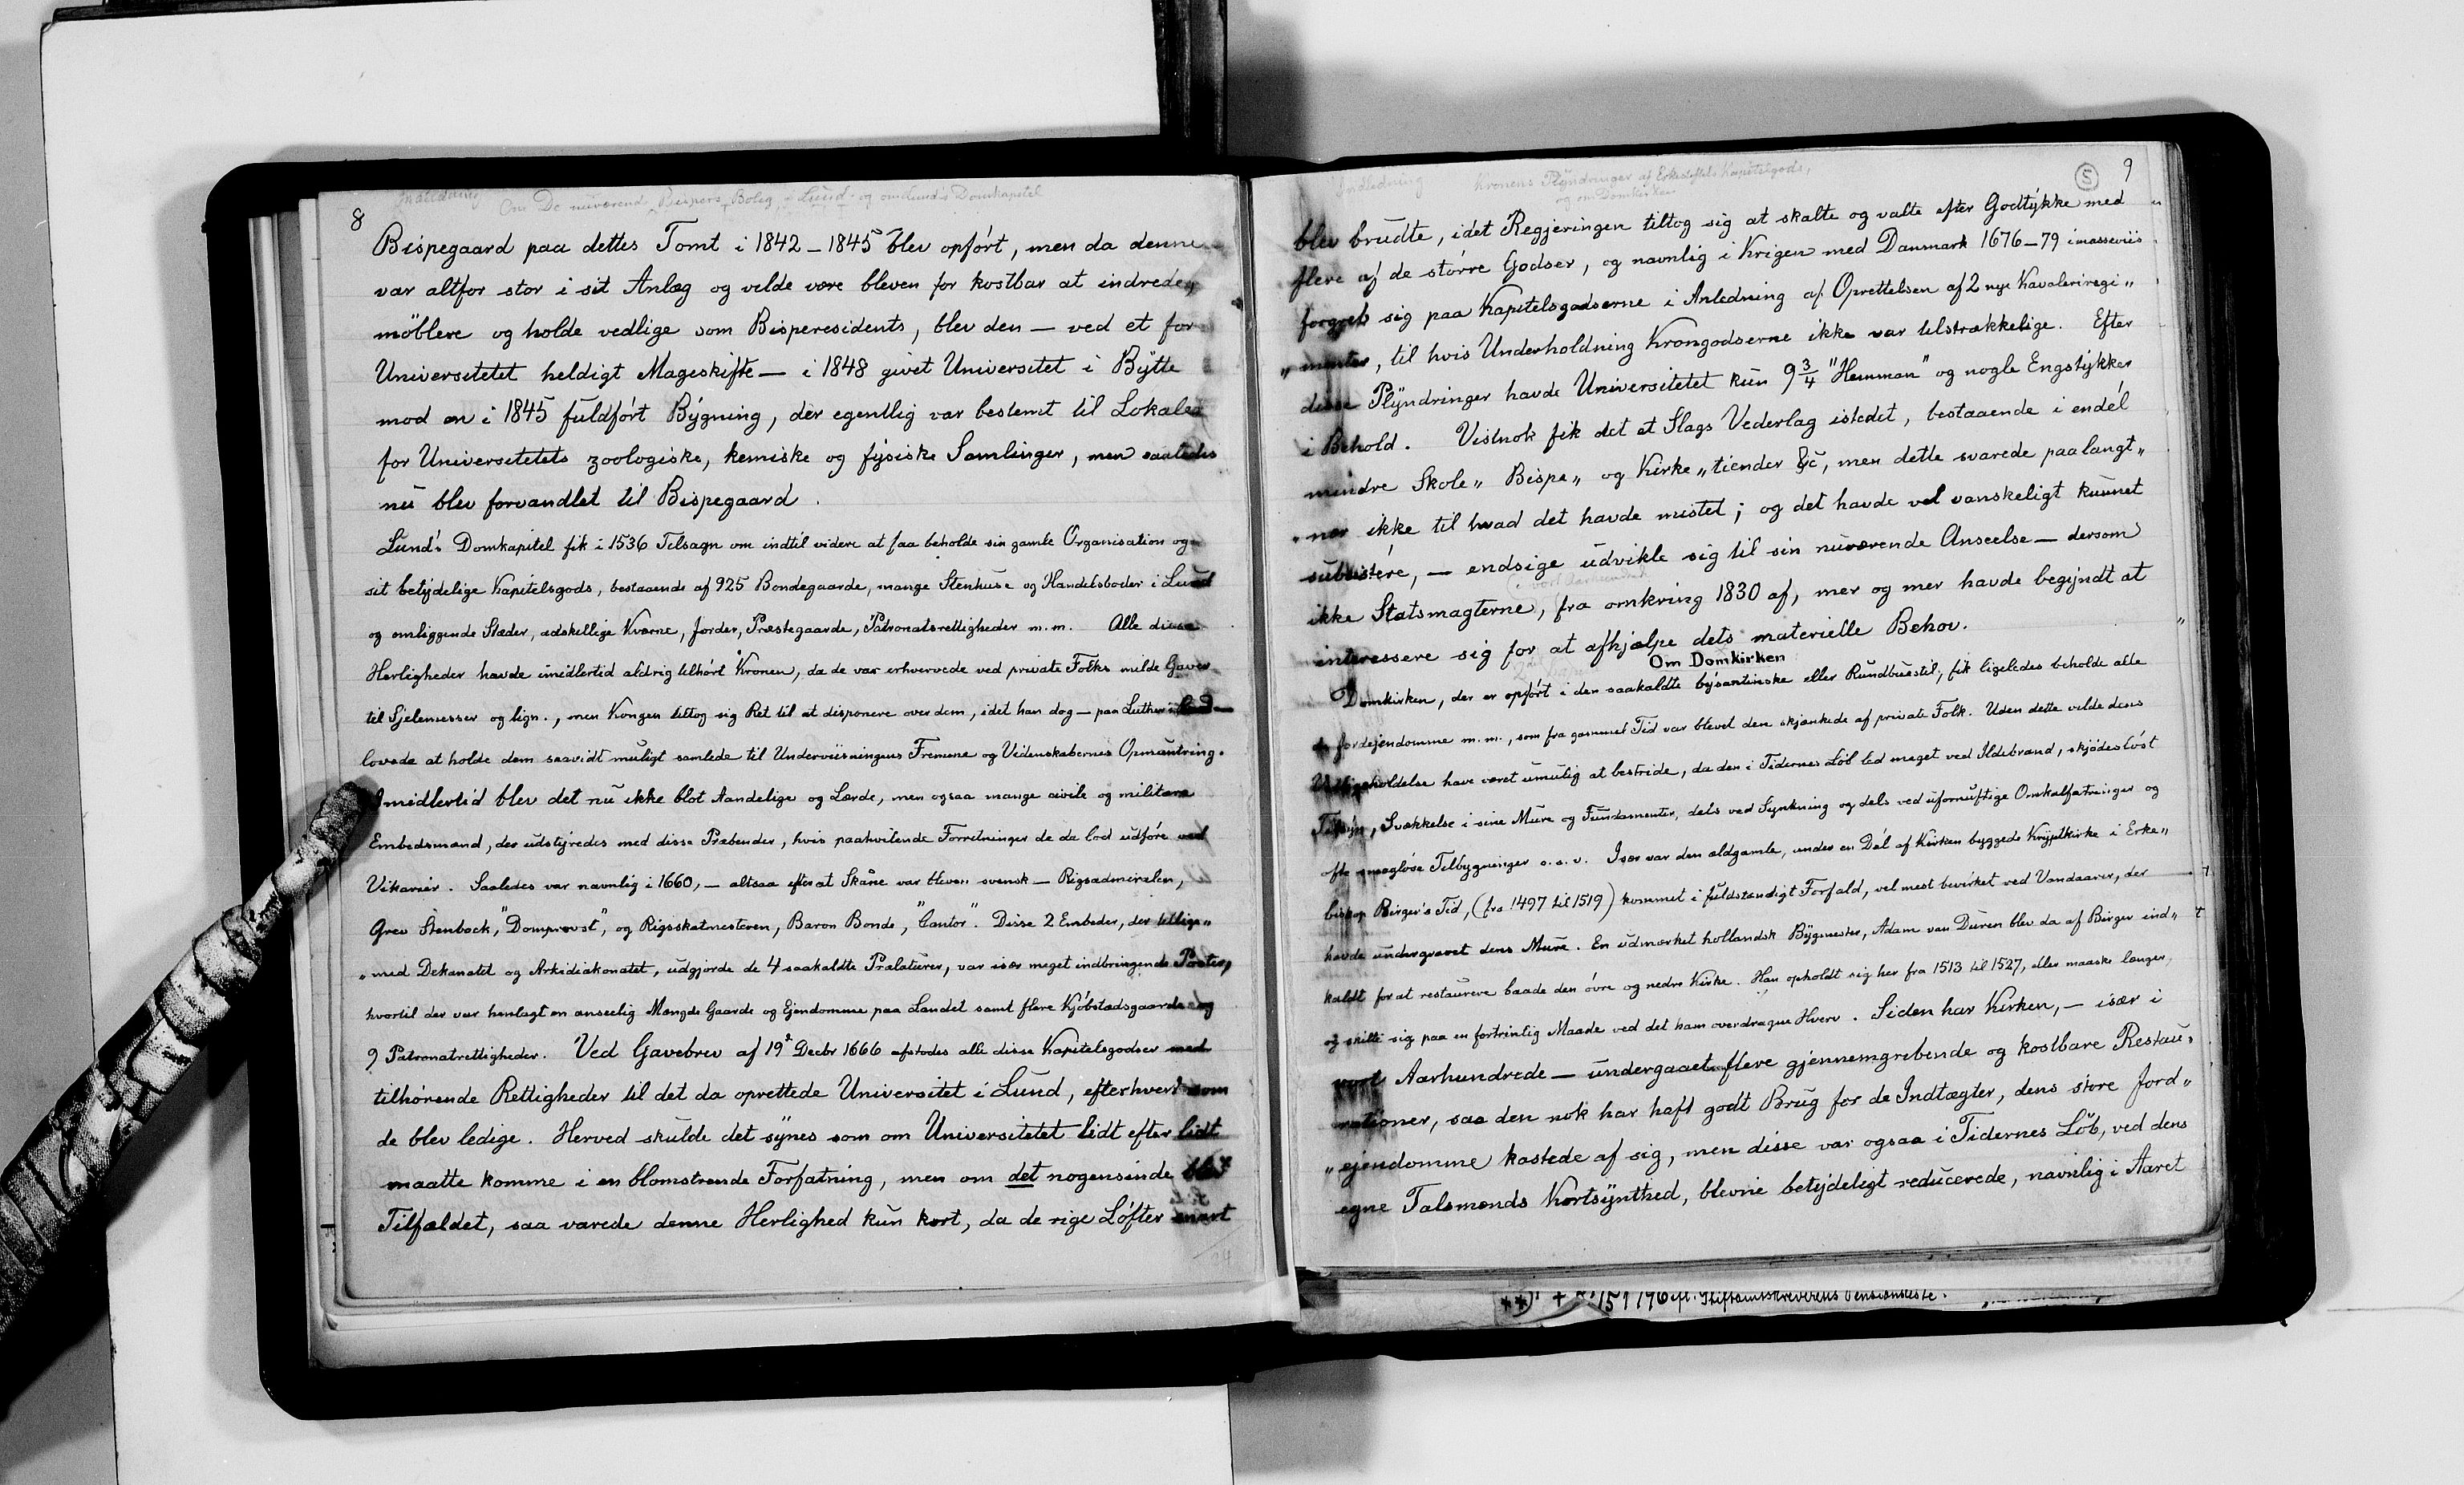 Indledning Om De nuværende Bispers Bolig i Lund og om Lund's Domkapitel
8
Bispegaard paa dettes Tomt i 1842–1845 blev opført, men da denne
var altfor stor i sit Anlæg og vilde være bleven for kostbar at indrede,
möblere og holde vedlige som Bisperesidents, blev den — ved et for
Universitetet heldigt Mageskifte — i 1848 givet Universitet i Bytte
mod en i 1845 fuldført Bygning, der egentlig var bestemt til Lokaler
for Universitetets zoologiske, kemiske og fysiske Samlinger, men saaledes
nu blev forvandlet til Bispegaard.
Lund's Domkapitel fik i 1536 Tilsagn om indtil videre at faa beholde sin gamle Organisation og
sit betydelige Kapitelsgods, bestaaende af 925 Bondegaarde, mange Stenhuse og Handelsboder i Lund
og omliggende Stæder, adskellige Kværne, Jorder, Præstegaarde, Patronatsrettigheder m.m. Alle disse
Herligheder havde imidlertid aldrig tilhørt Kronen, da de var erhvervede ved private Folks milde Gaver
til Sjelemesser og lign., men Kongen tiltog sig Ret til at disponere over dem, idet han dog — paa Luthers
lovede at holde dem saavidt muligt samlede til Underviisningens Fremme og Videnskabernes Opmuntring.
Imidlertid blev det nu ikke blot Aandelige og Lærde, men ogsaa mange civile og militære
Embedsmænd, der udstyredes med disse Præbender, hvis paahvilende Forretninger de da lod udføre ved
Vikarier. Saaledes var navnlig i 1660, — altsaa efter at Skåne var bleven svensk — Rigsadmiralen,
Grev Stenbock, "Domprovst", og Rigsskatmesteren, Baron Bonde, "Cantor". Disse 2 Embeder, der tillige„
„med Dekanatet og Arkidiakonatet, udgjorde de 4 saakaldte Prælaturer, var især meget indbringende Poster,
hvortil der var henlagt en anseelig Mængde Gaarde og Ejendomme paa Landet samt flere Kjøbstadsgaarde og
9 Patronatrettigheder. Ved Gavebrev af 19de Decbr 1666 afstodes alle disse Kapitelsgodser med
tilhørende Rettigheder til det da oprettede Universitet i Lund, efterhvert som
de blev ledige. Herved skulde det synes som om Universitetet lidt efter lidt
maatte komme i en blomstrende Forfatning, men om det nogensinde blev
Tilfældet, saa varede denne Herlighed kun kort, da de rige Løfter snart
Indledning Kronens Plyndringer af Erkestiftets Kapitelgods,
og om Domkirken
5 9
blev brudte, idet Regjeringen tiltog sig at skalte og valte efter Godtykke med
flere af de større Godser, og navnlig i Krigen med Danmark 1676–79 i masseviis
forgreb sig paa Kapitelsgodserne i Anledning af Oprettelsen af 2 nye Kavaleriregi„
„menter, til hvis Underholdning Krongodserne ikke var tilstrækkelige. Efter
disse Plyndringer havde Universitetet kun 9 3/4 "Hemman" og nogle Engstykker
i Behold. Vistnok fik det et Slags Vederlag istedet, bestaaende i endél
mindre Skole„ Bispe„ og Kirke„tiender &c, men dette svarede paa langt„
„nær ikke til hvad det havde mistet; og det havde vel vanskeligt kunnet
subsistére, — endsige udvikle sig til sin nuværende Anseelse — dersom
i vort Aarhundrede
ikke Statsmagterne, fra omkring 1830 af, mer og mer havde begyndt at
interessere sig for at afhjælpe dets materielle Behov.
Om Domkirken
Domkirken, der er opført i den saakaldte bysantinske eller Rundbuestil, fik ligeledes beholde alle
de Jordejendomme m.m., som fra gammel Tid var blevet den skjænkede af private Folk. Uden dette vilde dens
Vedligeholdelse have været umulig at bestride, da den i Tidernes Løb led meget ved Ildebrand, skjødesløst
Tilsyn, Svækkelse i sine Mure og Fundamenter, dels ved Synkning og dels ved ufornuftige Omkalfatringer og
ofte smagløse Tilbygninger o.s.v. Især var den ældgamle, under en Dél af Kirken byggede Kryptkirke i Erke„
biskop Birger's Tid, (fra 1497 til 1519) kommet i fuldstændigt Forfald, vel mest bevirket ved Vandaarer, der
havde undergravet dens Mure. En udmærket hollandsk Bygmester, Adam van Düren blev da af Birger ind„
kaldt for at restaurere baade den övre og nedre Kirke. Han opholdt sig her fra 1513 til 1527, eller maaske længer,
og skilte sig paa en fortrinlig Maade ved det ham overdragne Hverv. Siden har Kirken, — især i
vort Aarhundrede — undergaaet flere gjennemgribende og kostbare Restau„
rationer, saa den nok har haft godt Brug for de Indtægter, dens store Jord„
„ejendomme kastede af sig, men disse var ogsaa i Tidernes Løb, ved dens
egne Talsmænds Kortsynthed, blevne betydeligt reducerede, navnlig i Aaret
Stiftamtskriverens Pensionsliste.